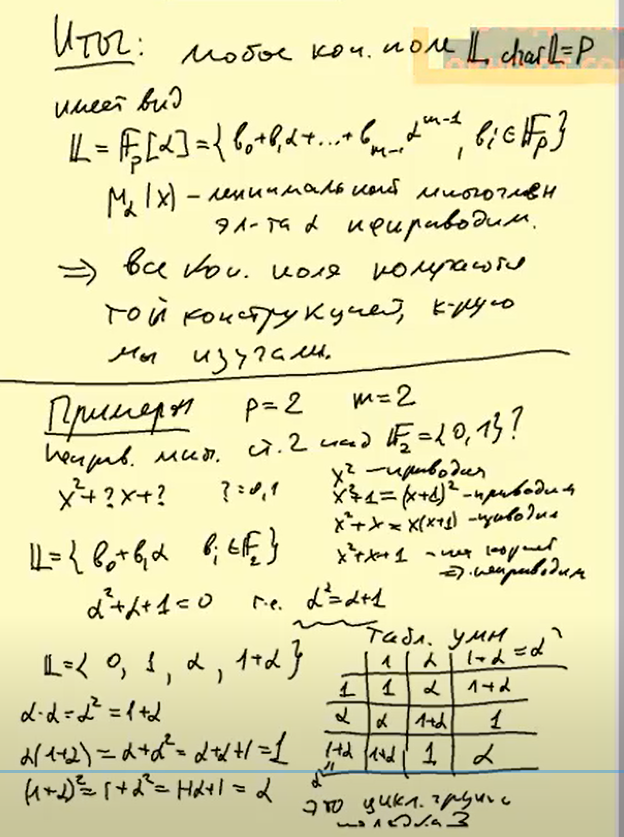 Итог: любое кон. поле 𝕃, char 𝕃 = p
имеет вид
𝕃 = 𝔽_p[α] = {b₀+b₁α+...+b_{m-1}α^{m-1}, b_i ∈ 𝔽_p}
M_α(x) – минимальный многочлен
эл-та α неприводим.
⇒ все кон. поля
той конструкцией, к-рую
мы изучали.
Примеры p=2 m=2
неприв. мн. ст. 2 над 𝔽₂={0,1}?
x²+?x+? ?=0,1
x² – приводим
x²+1=(x+1)² – приводим
x²+x=x(x+1) – приводим
x²+x+1 – нет корней
⇒ неприводим
𝕃={b₀+b₁α b_i∈𝔽₂}
α²+α+1=0 т.е. α²=α+1
𝕃={0, 1, α, 1+α}
α·α=α²=1+α
α(1+α)=α+α²=α+α+1=1
(1+α)²=1+α²=1+α+1=α
Табл. умн
1 α 1+α=α²
1 1 α 1+α
α α 1+α 1
1+α 1+α 1 α
α²
это цикл. группа
порядка 3